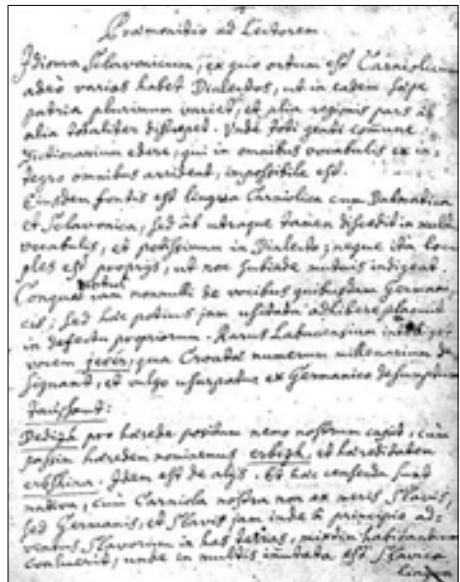 Præmonitio ad Lectorem
Idioma Sclavonicum, ex quo ortum est Carniolicum
adeò varias habet Dialectos, ut in eadem sæpe
patria plurimum variet, et alia regionis pars ab
alia totaliter discrepet. Unde toti genti comune
Dictionarium edere, qui in omnibus vocabulis ex in-
tegro omnibus arrideat, impossibile est.
Eiusdem fontis est lingua Carniolica cum Dalmatica
et Sclavonica, sed ab utraque tamen discedit in multis
vocabulis, et potissimum in Dialecto; neque ita locu
ples est proprijs, ut non subinde mutuis indigeat.
nonnulli de vocibus quibusdam Germani
cis; sed has potius jam usitatas adhibere placuit
in defectu propriorum. Rarus Labacensium
vocem jesèr, qua Croatæ numerum millenarium de
signant, et vulgo usurpatur ex Germanico desumptum
taushent:
Dedizh pro hærede positum nemo nostrum capit, cùm
passim hæredem nominemus erbizh, et hæreditatem
erbshina. Idem est de alijs. Et hæc censenda sunt
nativa, cùm Carniola nostra non ex meris Slavis,
sed Germanis, et Slavis jam inde à principio ad-
ventus Slavorum in has terras, mixtim habitantibus
coaluerit, unde in multis imutata est Slavica